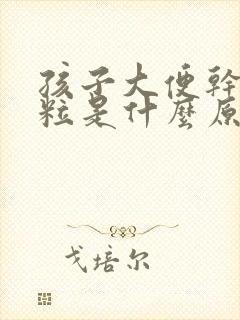 孩子大便幹
粒是什麼原
戈培尔